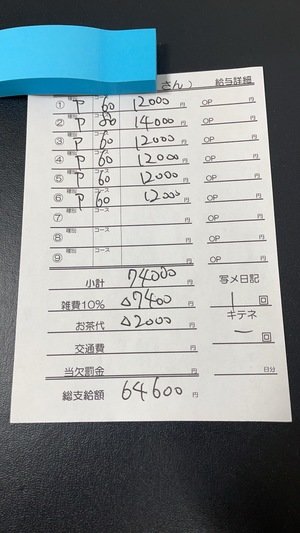 さん) 給与詳細
① 種別 P コース 60 12000 円 OP 円
② 種別 P コース 60 14000 円 OP 円
③ 種別 P コース 60 12000 円 OP 円
④ 種別 P コース 60 12000 円 OP 円
⑤ 種別 P コース 60 12000 円 OP 円
⑥ 種別 P コース 60 12000 円 OP 円
⑦ 種別 コース 円 OP 円
⑧ 種別 コース 円 OP 円
⑨ 種別 コース 円 OP 円
小計 74000 円 写メ日記
雑費10% △7400 円 回
お茶代 △2000 円 キテネ
交通費 円 回
当欠罰金 円 日分
総支給額 64600 円